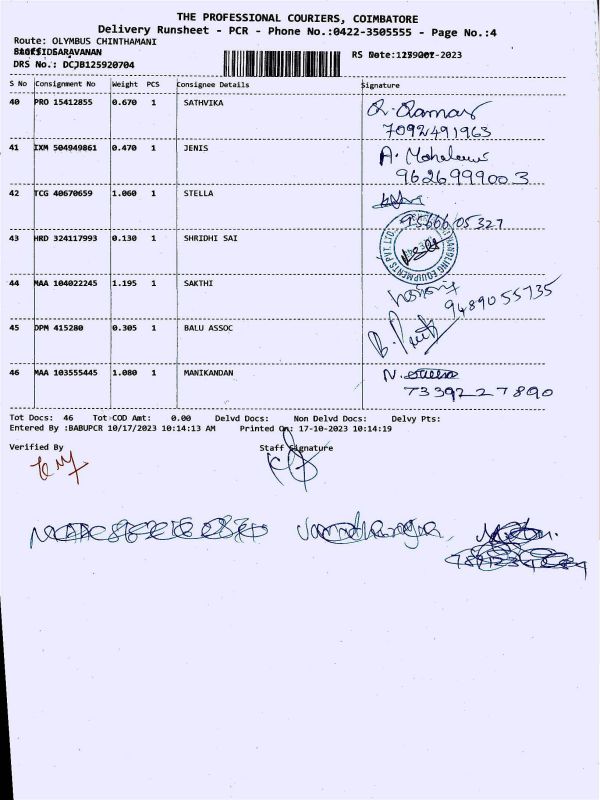 THE PROFESSIONAL COURIERS, COIMBATORE
Delivery Runsheet - PCR - Phone No.:0422-3505555 - Page No.:4
Route: OLYMBUS CHINTHAMANI
SARAVANAN
RS Date: -2023
DRS No.: DCJB125920704
S No Consignment No Weight PCS Consignee Details Signature
40 PRO 15412855 0.670 1 SATHVIKA
7092491963
41 IXM 504949861 0.470 1 JENIS A.
9626999003
42 TCG 40670659 1.060 1 STELLA
9566605327
43 HRD 324117993 0.130 1 SHRIDHI SAI
HANDLING EQUIPMENTS PVT. LTD.
44 MAA 104022245 1.195 1 SAKTHI
9489055735
45 DPM 415280 0.305 1 BALU ASSOC B.
46 MAA 103555445 1.080 1 MANIKANDAN N.
7339227890
Tot Docs: 46 Tot COD Amt: 0.00 Delvd Docs: Non Delvd Docs: Delvy Pts:
Entered By :BABUPCR 10/17/2023 10:14:13 AM Printed On: 17-10-2023 10:14:19
Verified By Staff Signature